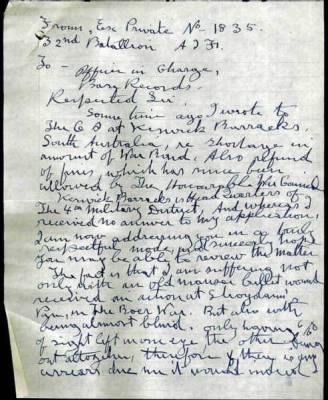 From, Ex Private No- 1835.
32nd Batallion A I F.
To - Officer in Charge,
Base Records.
Respected Sir.
Some time ago I wrote to
The C O at Keswick Barracks,
South Australia, re shortage in
amount of War Bond. Also refund
of fines, which has since been
allowed by The Honourable
Keswick Barracks is Head quarters of
The 4th Military District. And whereas I
received no answer to my application,
I am now addressing you in a
respectful mode, and sincerely hope
you may be able to review the matter
The fact is that I am suffering not
only with an old mauser bullet wound
received in action at
in the Boer War. But also with
being almost blind. only having 6/60
of sight left in one eye the other being
out altogether, therefore if there is any
arrears due me it would